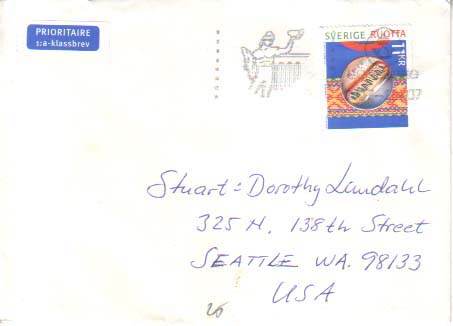 PRIORITAIRE
1:a-klassbrev
SVERIGE RUOTTA
11 KR
Stuart = Dorothy Lundahl
325 N. 138th Street
SEATTLE WA. 98133
USA
26